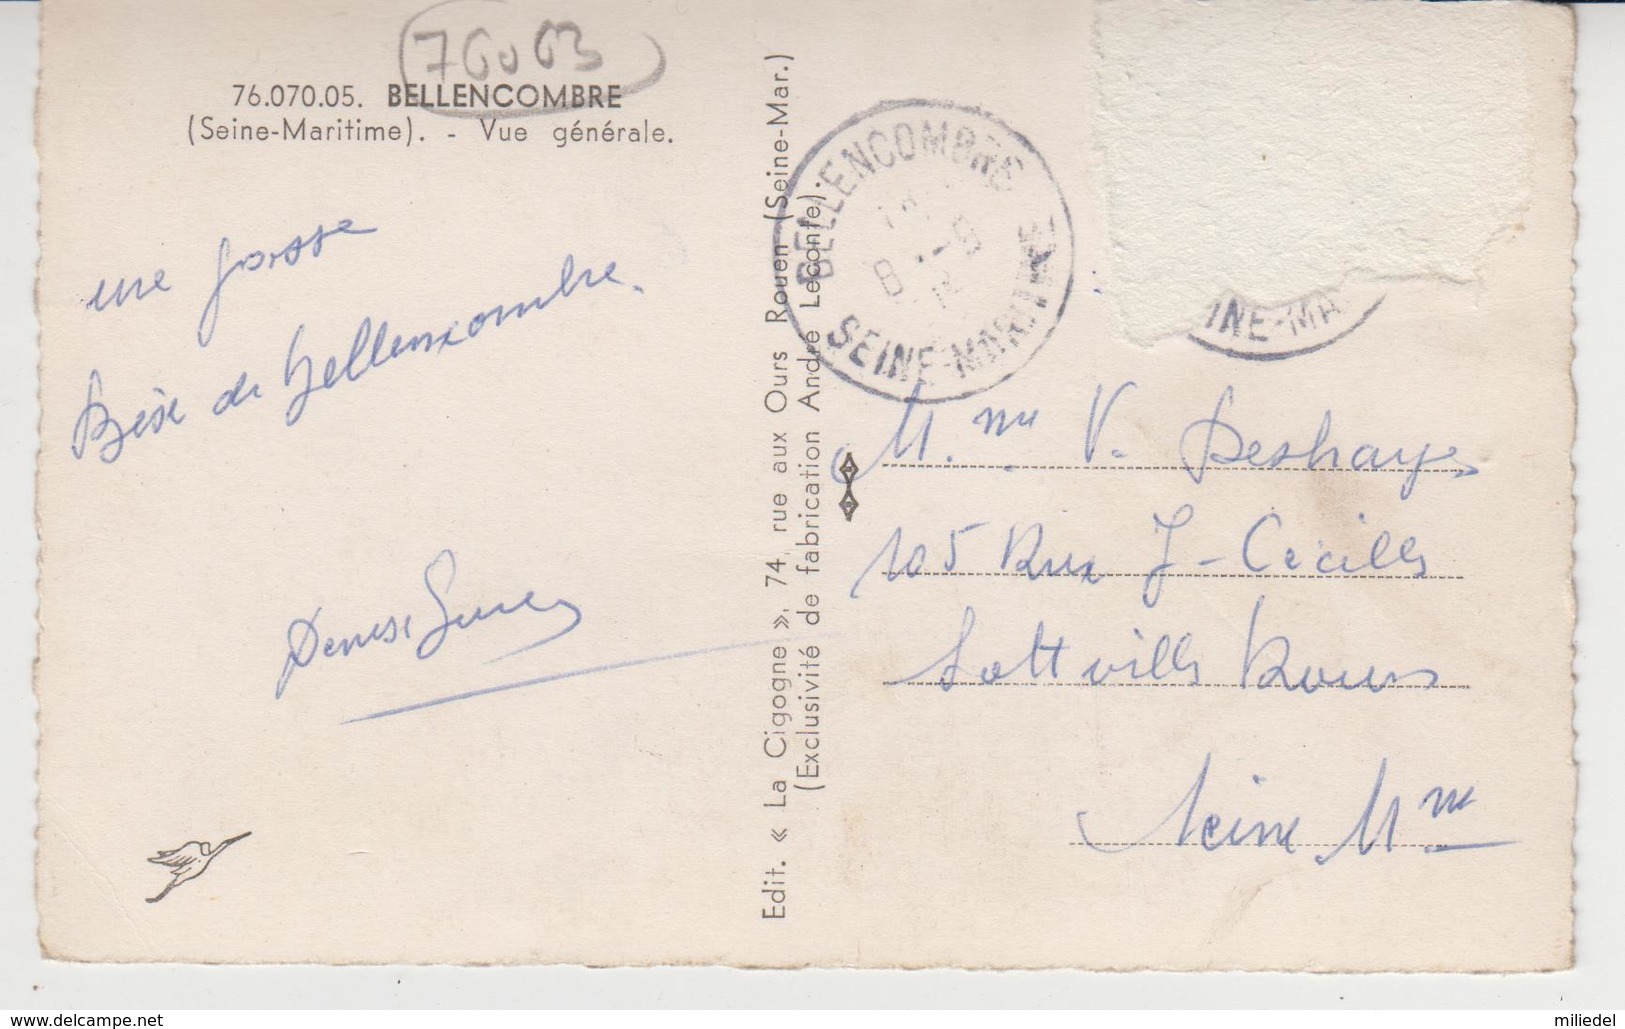 76063
76.070.05. BELLENCOMBRE
(Seine-Maritime). - Vue générale.
une grosse
Bise de Bellencombre.
Denise
Edit. « La Cigogne », 74, rue aux Ours Rouen (Seine-Mar.)
(Exclusivité de fabrication André Leconte).
BELLENCOMBRE
SEINE-MARITIME
INE-MA
M.me V. Deshayes
105 Rue J-Cecille
Sotteville Rouen
Seine Mme
www.delcampe.net
miliedel